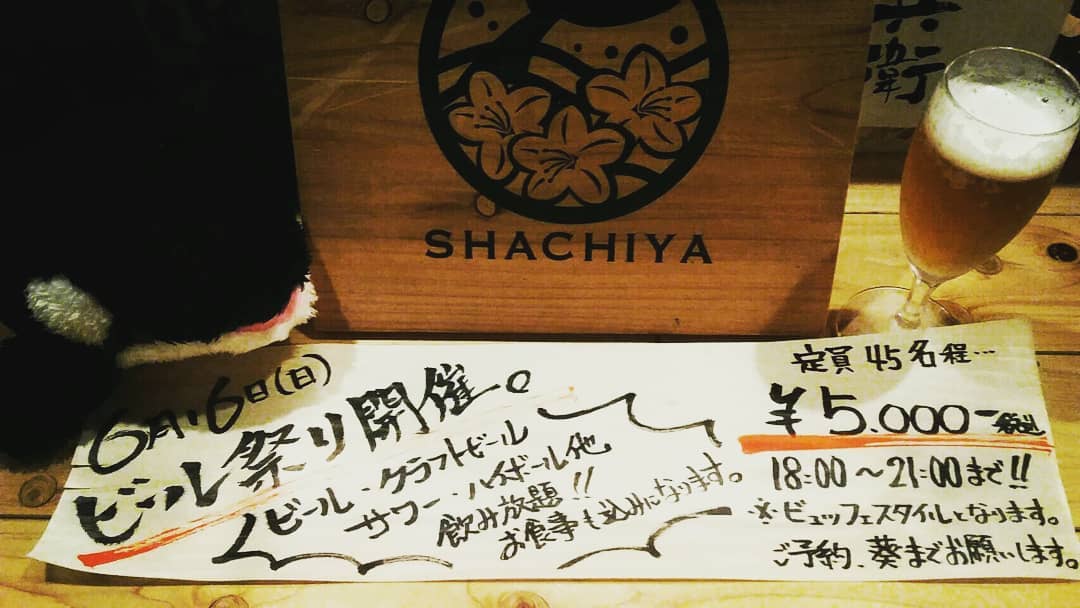 兵衛
SHACHIYA
6月16日(日)
ビール祭り開催。
ビール・クラフトビール
サワー・ハイボール他
飲み放題!!
お食事も込みになります。
定員45名程…
¥5.000-税込
18:00〜21:00まで!!
※ビュッフェスタイルとなります。
ご予約、葵までお願いします。